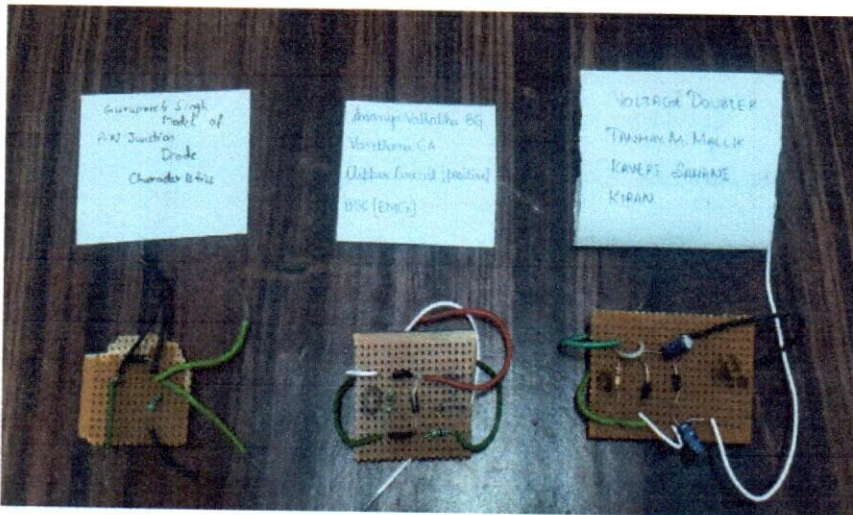 Gurupreet Singh
Model of
P-N Junction
Diode
Characteristics
Ananya Vallabha BG
Vardhana GA
Clipper Circuit [positive]
BSC [EMCs]
VOLTAGE DOUBLER
TANMAY M. MALLIK
KAVERI
KIRAN